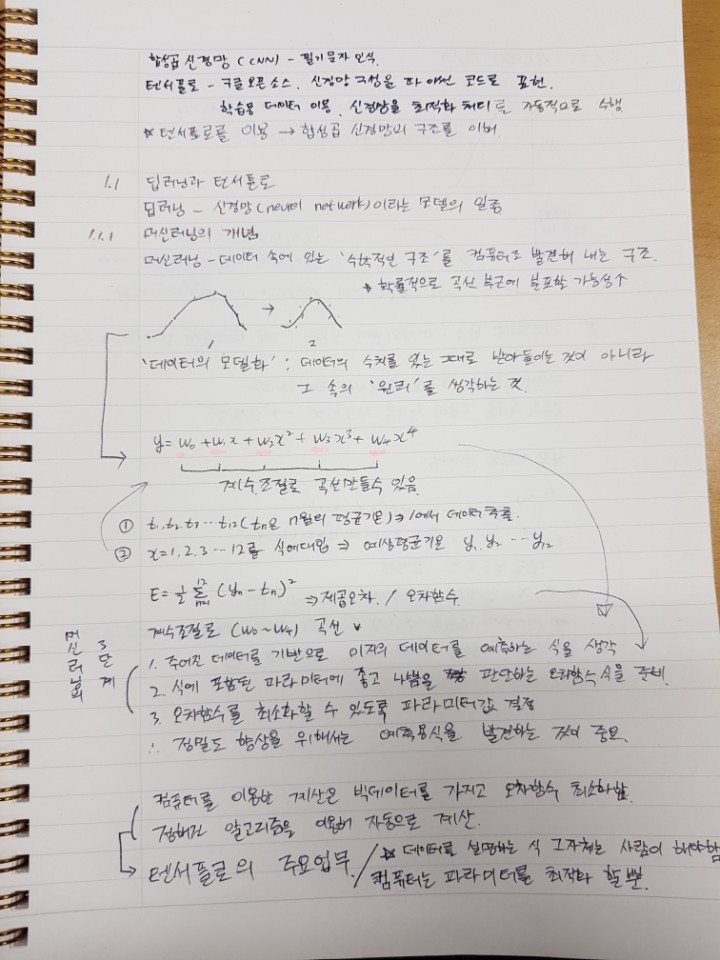 합성곱 신경망 (CNN) - 필기문자 인식.
텐서플로 - 구글 오픈소스. 신경망 구성을 파이썬 코드로 표현.
학습용 데이터 이용. 신경망을 최적화 처리를 자동적으로 수행
☆ 텐서플로를 이용 → 합성곱 신경망의 구조를 이해
1.1 딥러닝과 텐서플로
딥러닝 - 신경망(neural network)이라는 모델의 일종
1.1.1 머신러닝의 개념
머신러닝 - 데이터 속에 있는 '수학적인 구조'를 컴퓨터로 발견해 내는 구조.
확률적으로 곡선 부근에 분포할 가능성↑
→
1 2
'데이터의 모델화' : 데이터의 수치를 있는 그대로 받아들이는 것이 아니라
그 속의 '원리'를 생각하는 것.
y = w₀ + w₁x + w₂x² + w₃x³ + w₄x⁴
계수조절로 곡선만들수 있음.
① t₁.t₂.t₃ … t₁₂ (tn은 n월의 평균기온) ⇒ 1에서 데이터 축출.
② x = 1, 2, 3 … 12를 식에대입 ⇒ 예상평균기온 y₁, y₂ … y₁₂
E = ½ Σ (yn - tn)² ⇒ 제곱오차. / 오차함수.
n=1 12
계수조절로 (w₀~w₄) 곡선
머신러닝의 3단계
1. 주어진 데이터를 기반으로 미지의 데이터를 예측하는 식을 생각
2. 식에 포함된 파라미터에 좋고 나쁨을 판단하는 오차함수 식을 준비.
3. 오차함수를 최소화할 수 있도록 파라미터값 결정
∴ 정밀도 향상을 위해서는 예측용식을 발견하는 것이 중요.
컴퓨터를 이용한 계산은 빅데이터를 가지고 오차함수 최소화함.
정해진 알고리즘을 이용해 자동으로 계산.
→ 텐서플로의 주요업무 / ☆ 데이터를 설명하는 식 그자체는 사람이 해야함
컴퓨터는 파라미터를 최적화 할뿐.